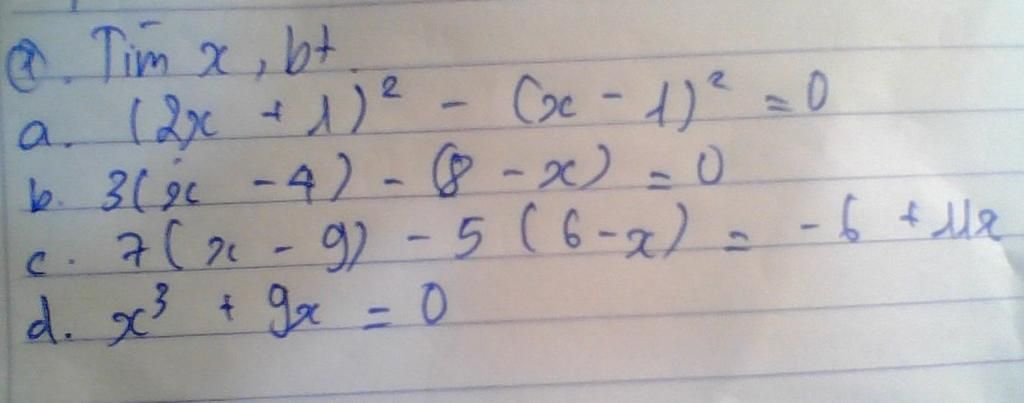 ②. Tìm x, bt
a. (2x + 1)² - (x - 1)² = 0
b. 3(x - 4) - (8 - x) = 0
c. 7(x - 9) - 5(6 - x) = -6 + 11x
d. x³ + 9x = 0